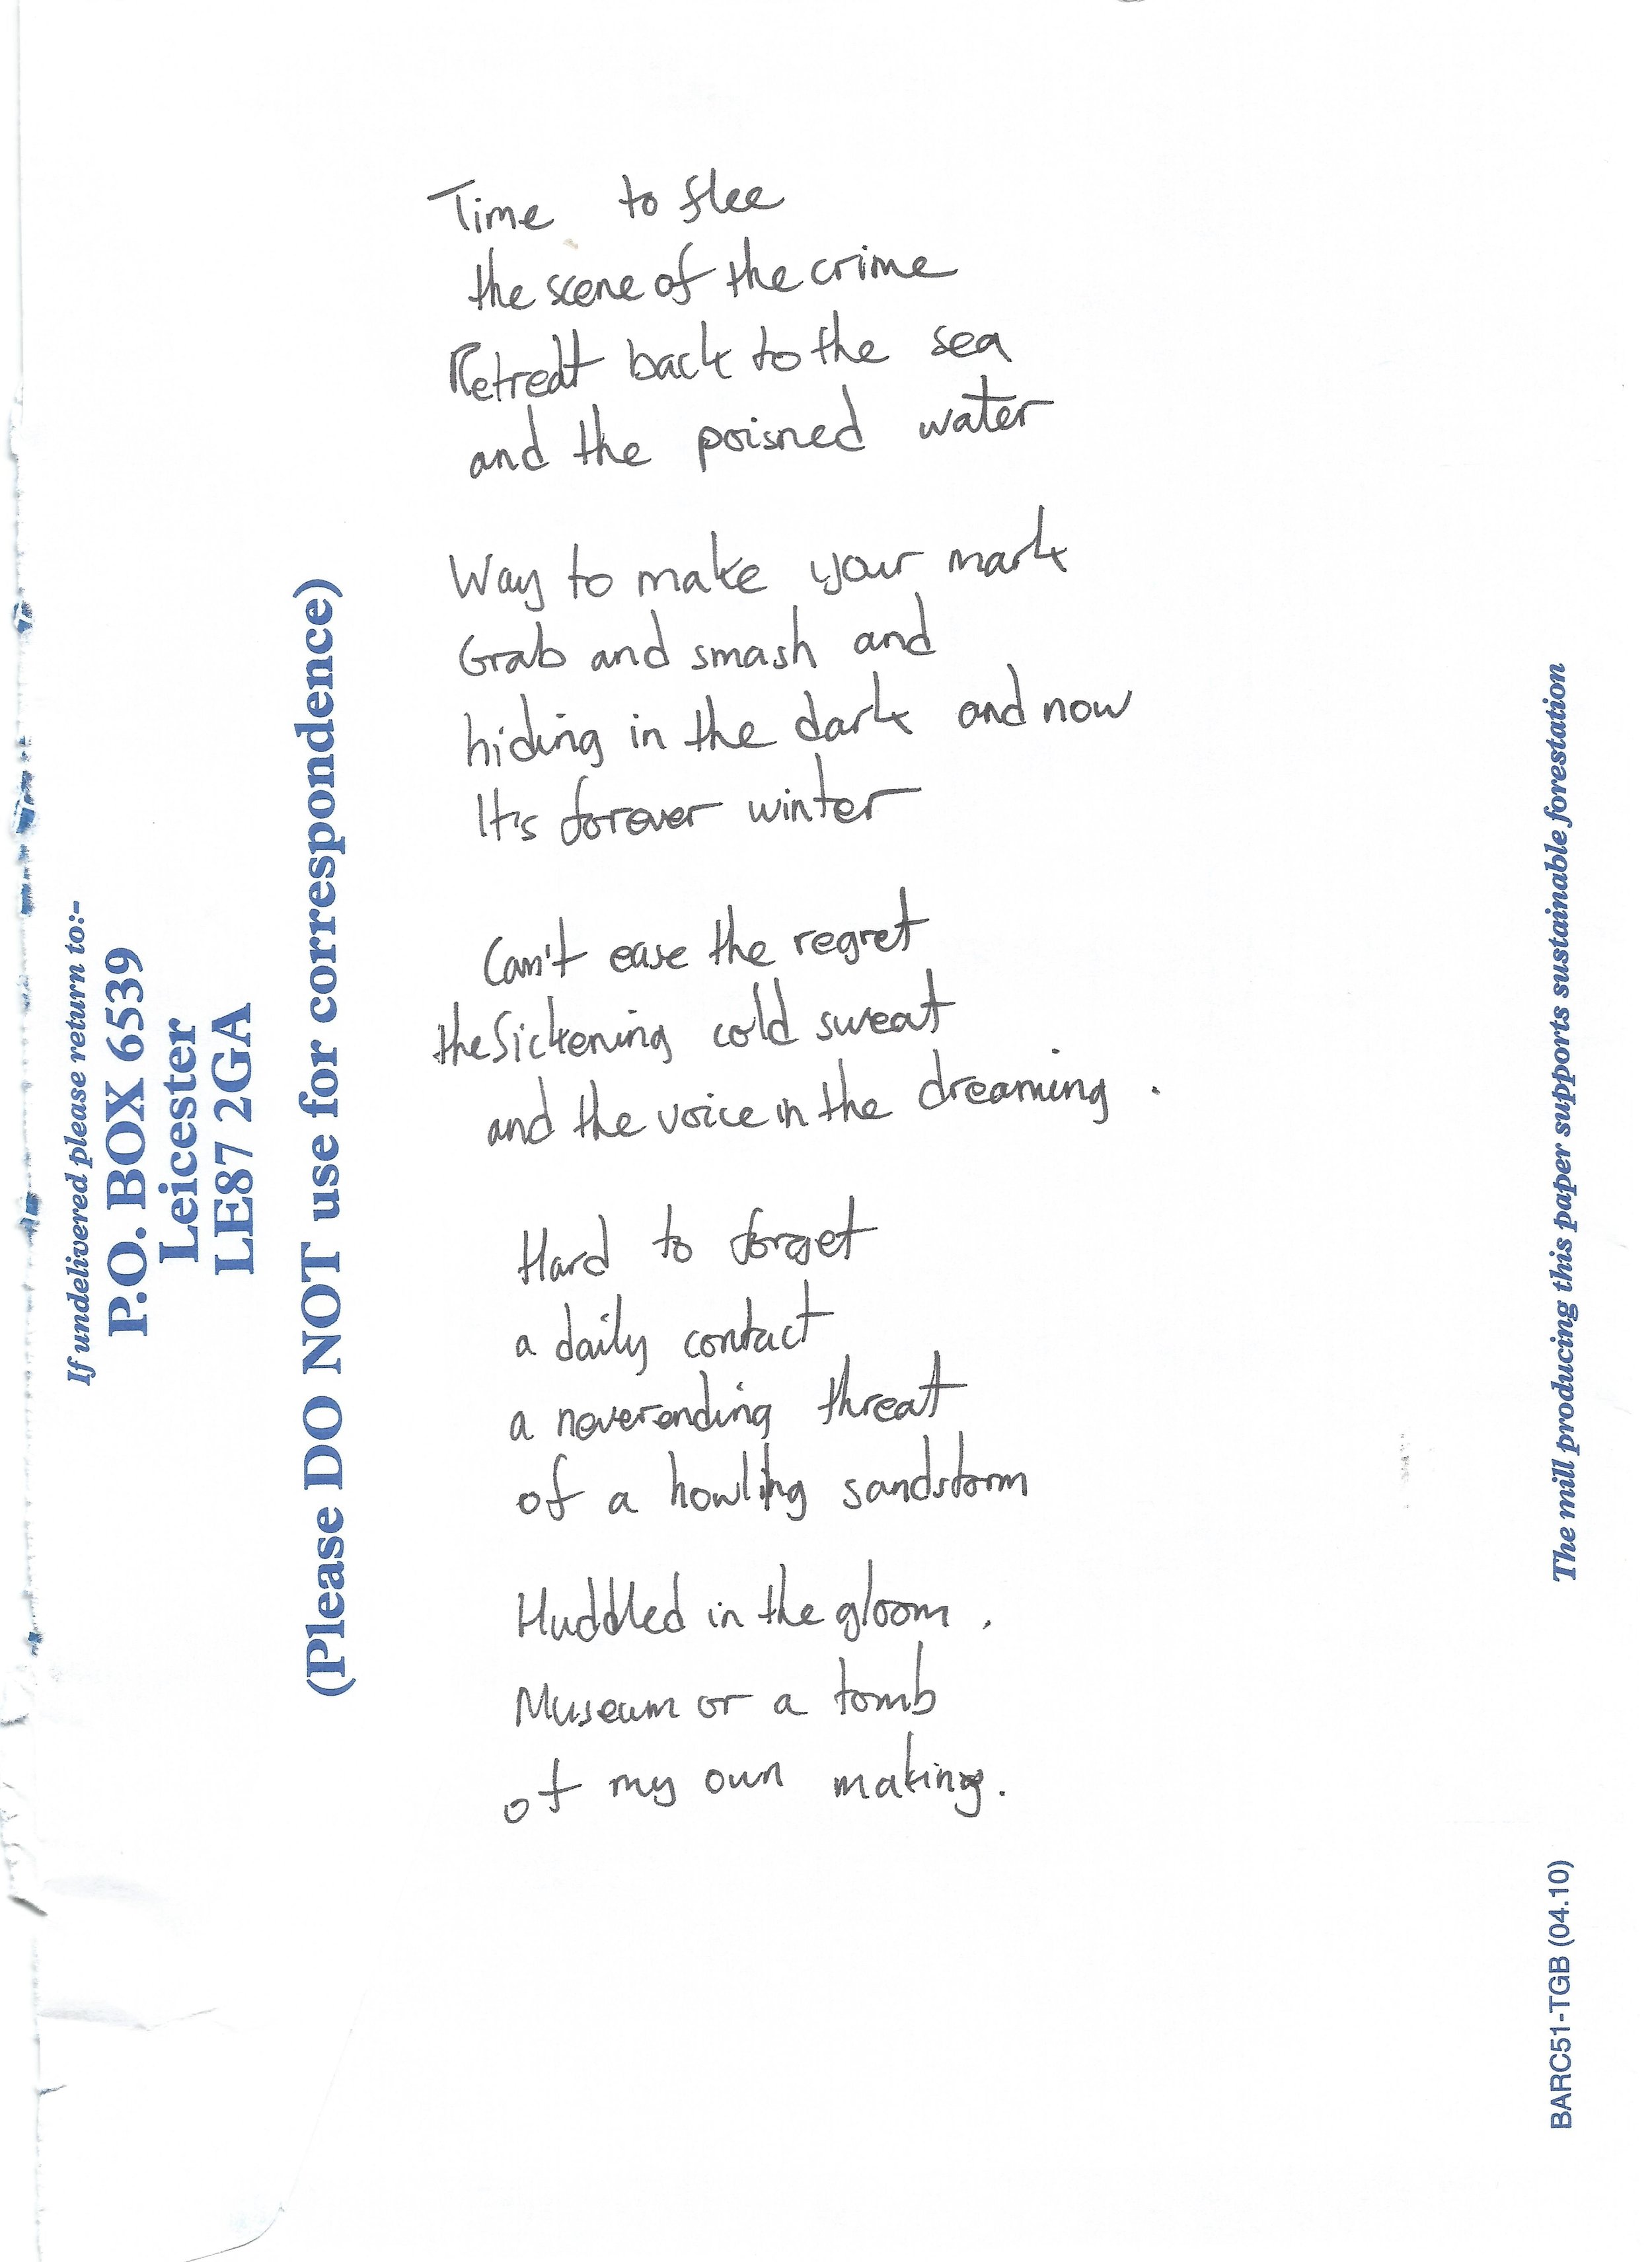 Time to flee
the scene of the crime
Retreat back to the sea
and the poisned water
Way to make your mark
Grab and smash and
hiding in the dark and now
It's forever winter
Can't ease the regret
the Sickening cold sweat
and the voice in the dreaming.
Hard to forget
a daily contact
a neverending threat
of a howling sandstorm
Huddled in the gloom.
Museum or a tomb
of my own making.
If undelivered please return to:-
P.O. BOX 6539
Leicester
LE87 2GA
(Please DO NOT use for correspondence)
The mill producing this paper supports sustainable forestation
BARC51-TGB (04.10)